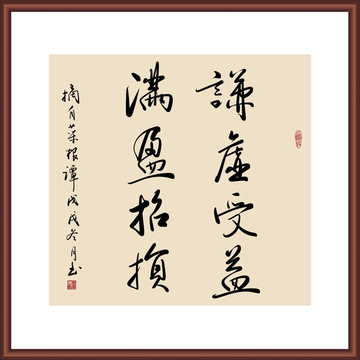 謙虛受益
滿盈招損
摘自菜根譚戊戌冬月玉